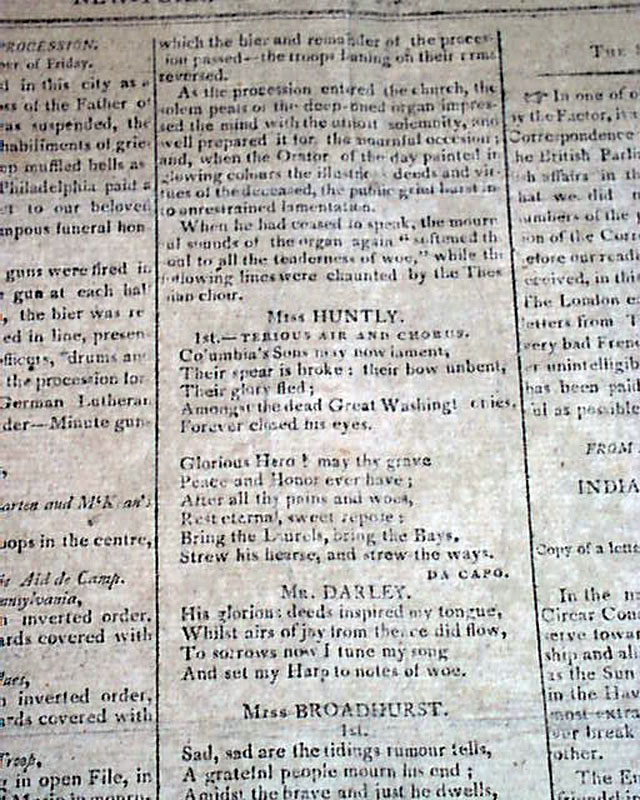 PROCESSION.
of Friday.
in this city as
of the Father of
was suspended, the
habiliments of grie-
muffled bells as
Philadelphia paid a
to our beloved
mpous funeral hon
guns were fired in
gun at each hal
, the bier was re
ed in line, presen-
officers, "drums an
the procession for
German Lutheran
der—Minute gun-
arten and McKean's
oops in the centre,
Aid de Camp.
nnsylvania,
n inverted order.
ards covered with
n inverted order,
ards covered with
Troop,
g in open File, in
which the bier and remainder of the proces-
ion passed—the troops leaning on their arms
reversed.
As the procession entered the church, the
solem peals of the deep-toned organ impres-
sed the mind with the utmost solemnity, and
well prepared it for the mournful occesion;
and, when the Orator of the day painted in
glowing colours the illustri deeds and vir-
tues of the deceased, the public grief burst in
to unrestrained lamentation.
When he had ceased to speak, the mourn
ul sounds of the organ again "softened th
oul to all the tenderness of woe," while the
following lines were chaunted by the Thes
ian choir.
Miss HUNTLY.
1st.—TERIOUS AIR AND CHORUS.
Co'umbia's Sons may now lament,
Their spear is broke: their bow unbent,
Their glory fled;
Amongst the dead Great Washingt on lies,
Forever closed his eyes.
Glorious Hero! may thy grave
Peace and Honor ever have;
After all thy pains and woes,
Rest eternal, sweet repose;
Bring the Laurels, bring the Bays,
Strew his hearse, and strew the ways.
DA CAPO.
Mr. DARLEY.
His glorious deeds inspired my tongue,
Whilst airs of joy from thence did flow,
To sorrows now I tune my song
And set my Harp to notes of woe.
Miss BROADHURST.
1st.
Sad, sad are the tidings rumour tells,
A grateful people mourn his end;
Amidst the brave and just he dwells,
The
In one of o
y the Factor, is a
Correspondence
he British Parli
affairs in th
hat we did
umbers of the
on of the Corr
efore our reade
eceived, in this
The London e
etters from T
very bad Frenc
r unintelligib
has been paid
ul as possible
FROM
INDIA
Copy of a lette
In the
Circar Com
serve towar
ship and al
as the Sun
in the Hav
most extra
ver break
other.
The En